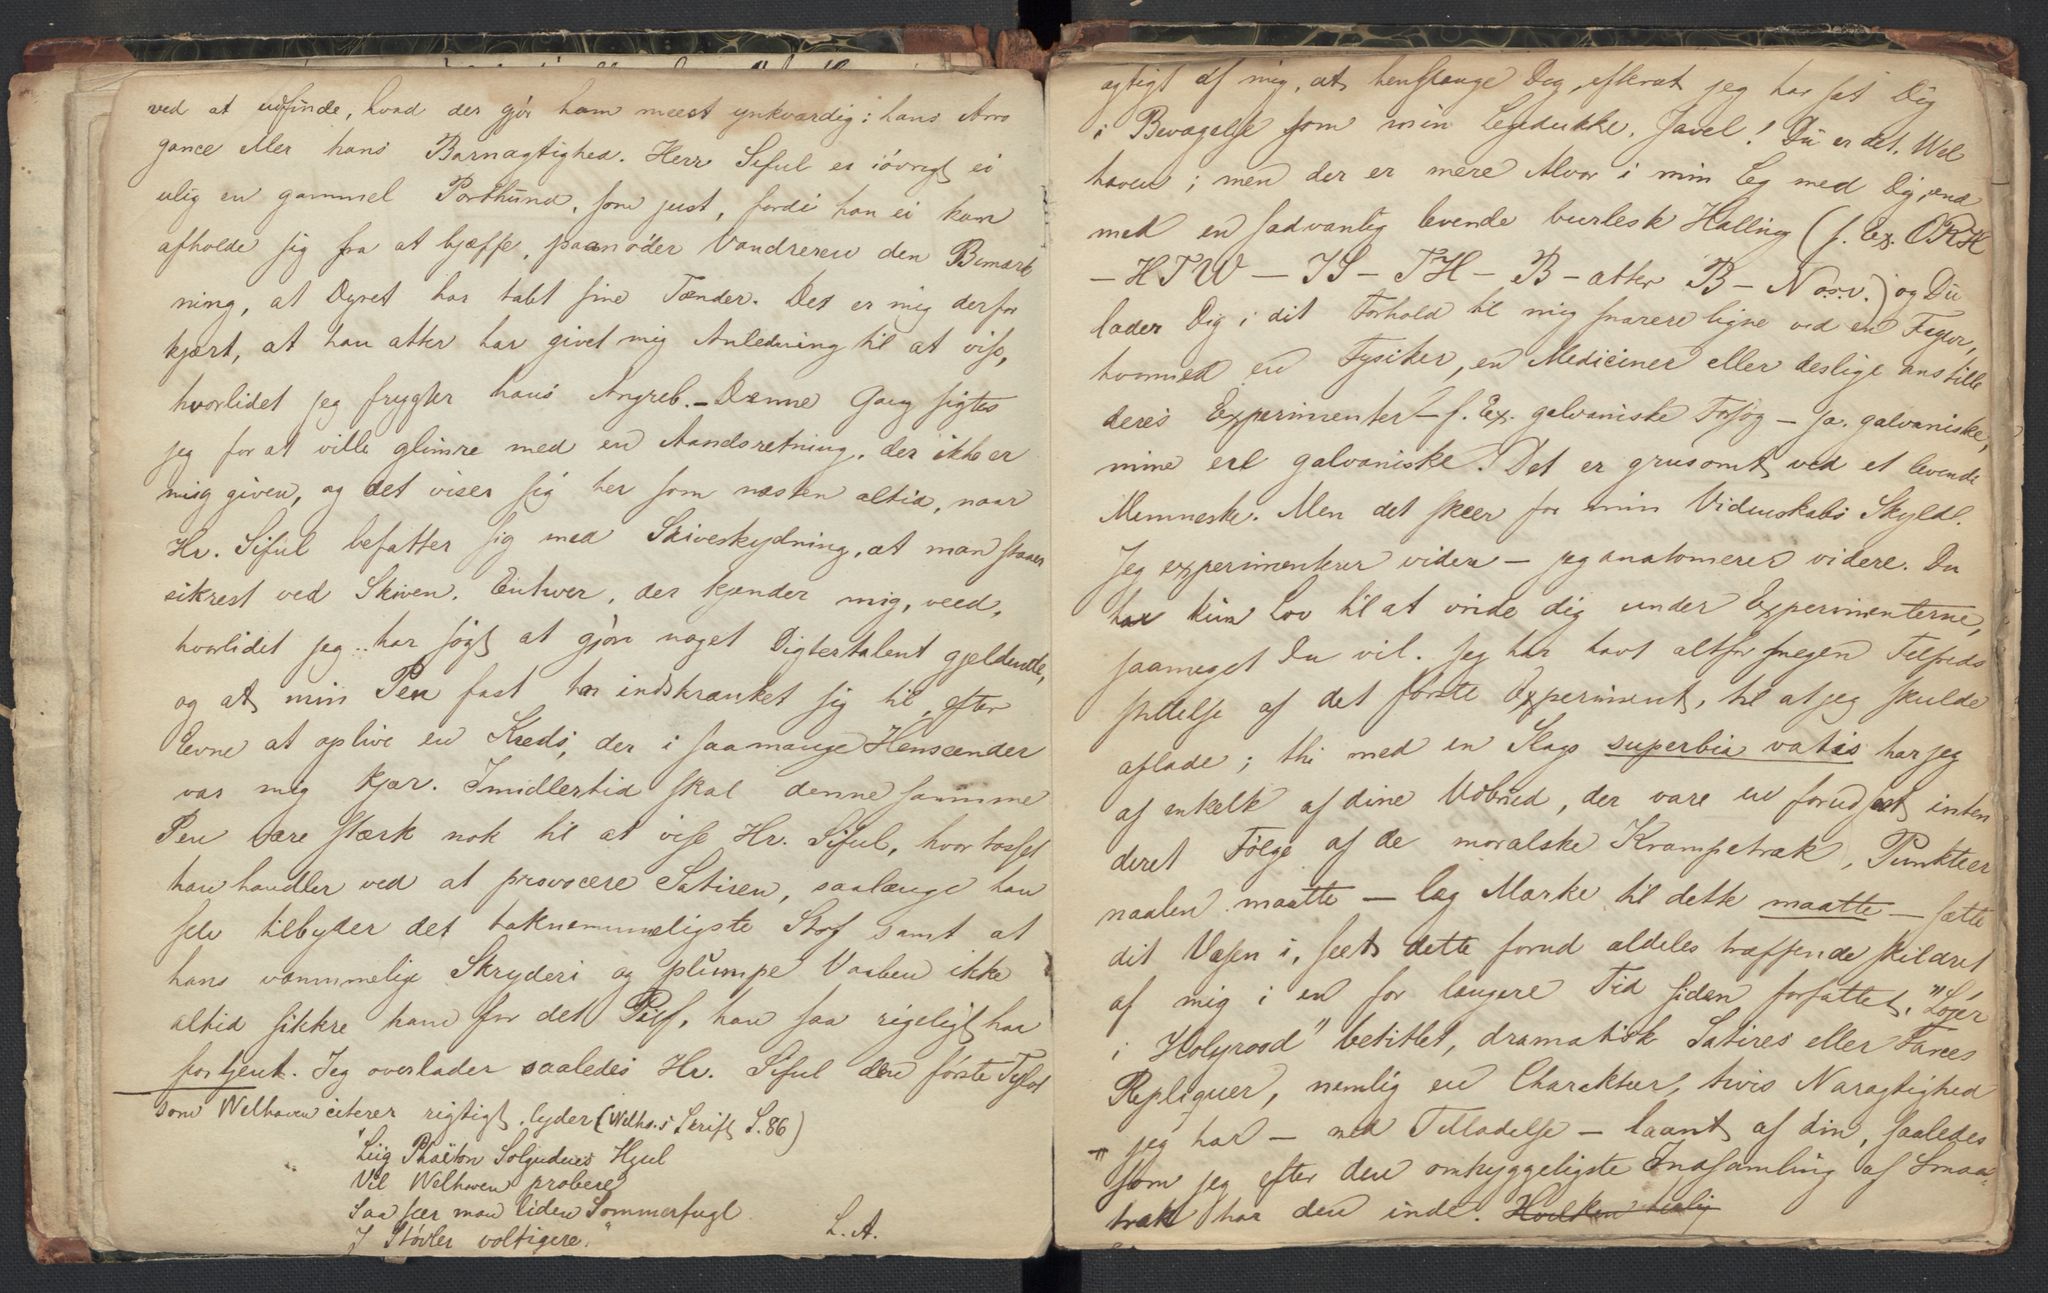 ved at udfinde, hvad der gjör ham meest ynkværdig: hans Arro
gance eller hans Barnagtighed. Herr Siful er iövrigt ei
ulig en gammel Porthund, som just, fordi han ei kan
afholde sig fra at bjæffe, paanöder Vandreren den Bemærk
ning, at Dyret har tabt sine Tænder. Det er mig derfor
kjært, at han atter har givet mig Anledning til at vise,
hvorlidet jeg frygter hans Angreb. - Denne Gang sigtes
jeg for at ville glimre med en Aandsretning, der ikke er
mig given, og det viser sig her som næsten altid, naar
Hr. Siful befatter sig med Skiveskydning, at man staaer
sikrest ved Skiven. Enhver, der kjender mig, veed,
hvorlidet jeg har sögt at gjöre noget Digtertalent gjeldende,
og at min Pen fast har indskrænket sig til, efter
Evne at oplive en Kreds, der i saamange Henseender
var mig kjær. Imidlertid skal denne samme
Pen være stærk nok til at vise Hr. Siful, hvor tosset
han handler ved at provocere Satiren, saalænge han
selv tilbyder det taknemmeligste Stof samt at
hans vammelige Skryderi og plumpe Vaaben ikke
altid sikkre ham for det Riis, han saa rigeligt har
fortjent. Jeg overlader saaledes Hr. Siful den förste
som Welhaven citerer rigtigt, lyder (Welh.s Skrift S. 86)
"Liig Phaëton Solgudens Hjul
Vil Welhaven probere
Saa seer man liden Sommerfugl
I Stövler voltigere."
L. A.
agtigt af mig, at henslænge Dig, efterat jeg har sat Dig
i Bevægelse som min Legedukke. Javel! Du er det, Wel
haven; men der er mere Alvor i min Leg med Dig, end
med en sædvanlig levende burlesk Halling (f. Ex. ORH
- HTW - IS - TH - B - atter B - N o.s.v.) og Du
lader Dig i dit Forhold til mig snarere ligne ved en
hvormed en Fysiker, en Mediciner eller deslige anstille
deres Experimenter - f. Ex. galvaniske Forsög - ja, galvaniske,
mine ere galvaniske. Det er grusomt ved et levende
Menneske. Men det skeer for min Videnskabs Skyld.
Jeg experimenterer videre - jeg anatomerer videre. Du
har kun Lov til at vride dig under Experimenterne,
saameget Du vil. Jeg har havt altfor megen Tilfreds
stillelse af det förste Experiment, til at jeg skulde
aflade; thi med en Slags superbia vatis har jeg
af enkelte af dine Udbrud, der vare en forudseet inten
deret Fölge af de moralske Krampetræk, Punkteer
naalen maatte - læg Mærke til dette maatte - sætte
dit Væsen i, seet dette forud aldeles træffende skildret
af mig i en for længere Tid siden forfattet, "Löier
i Holyrood" betitlet, dramatisk Satires eller Farces
Repliquer, nemlig en Charakteer, hvis Naragtighed
jeg har - med Tilladelse - laant af din, saaledes
som jeg efter den omhyggeligste Indsamling af Smaa-
træk har den inde. Hvilken